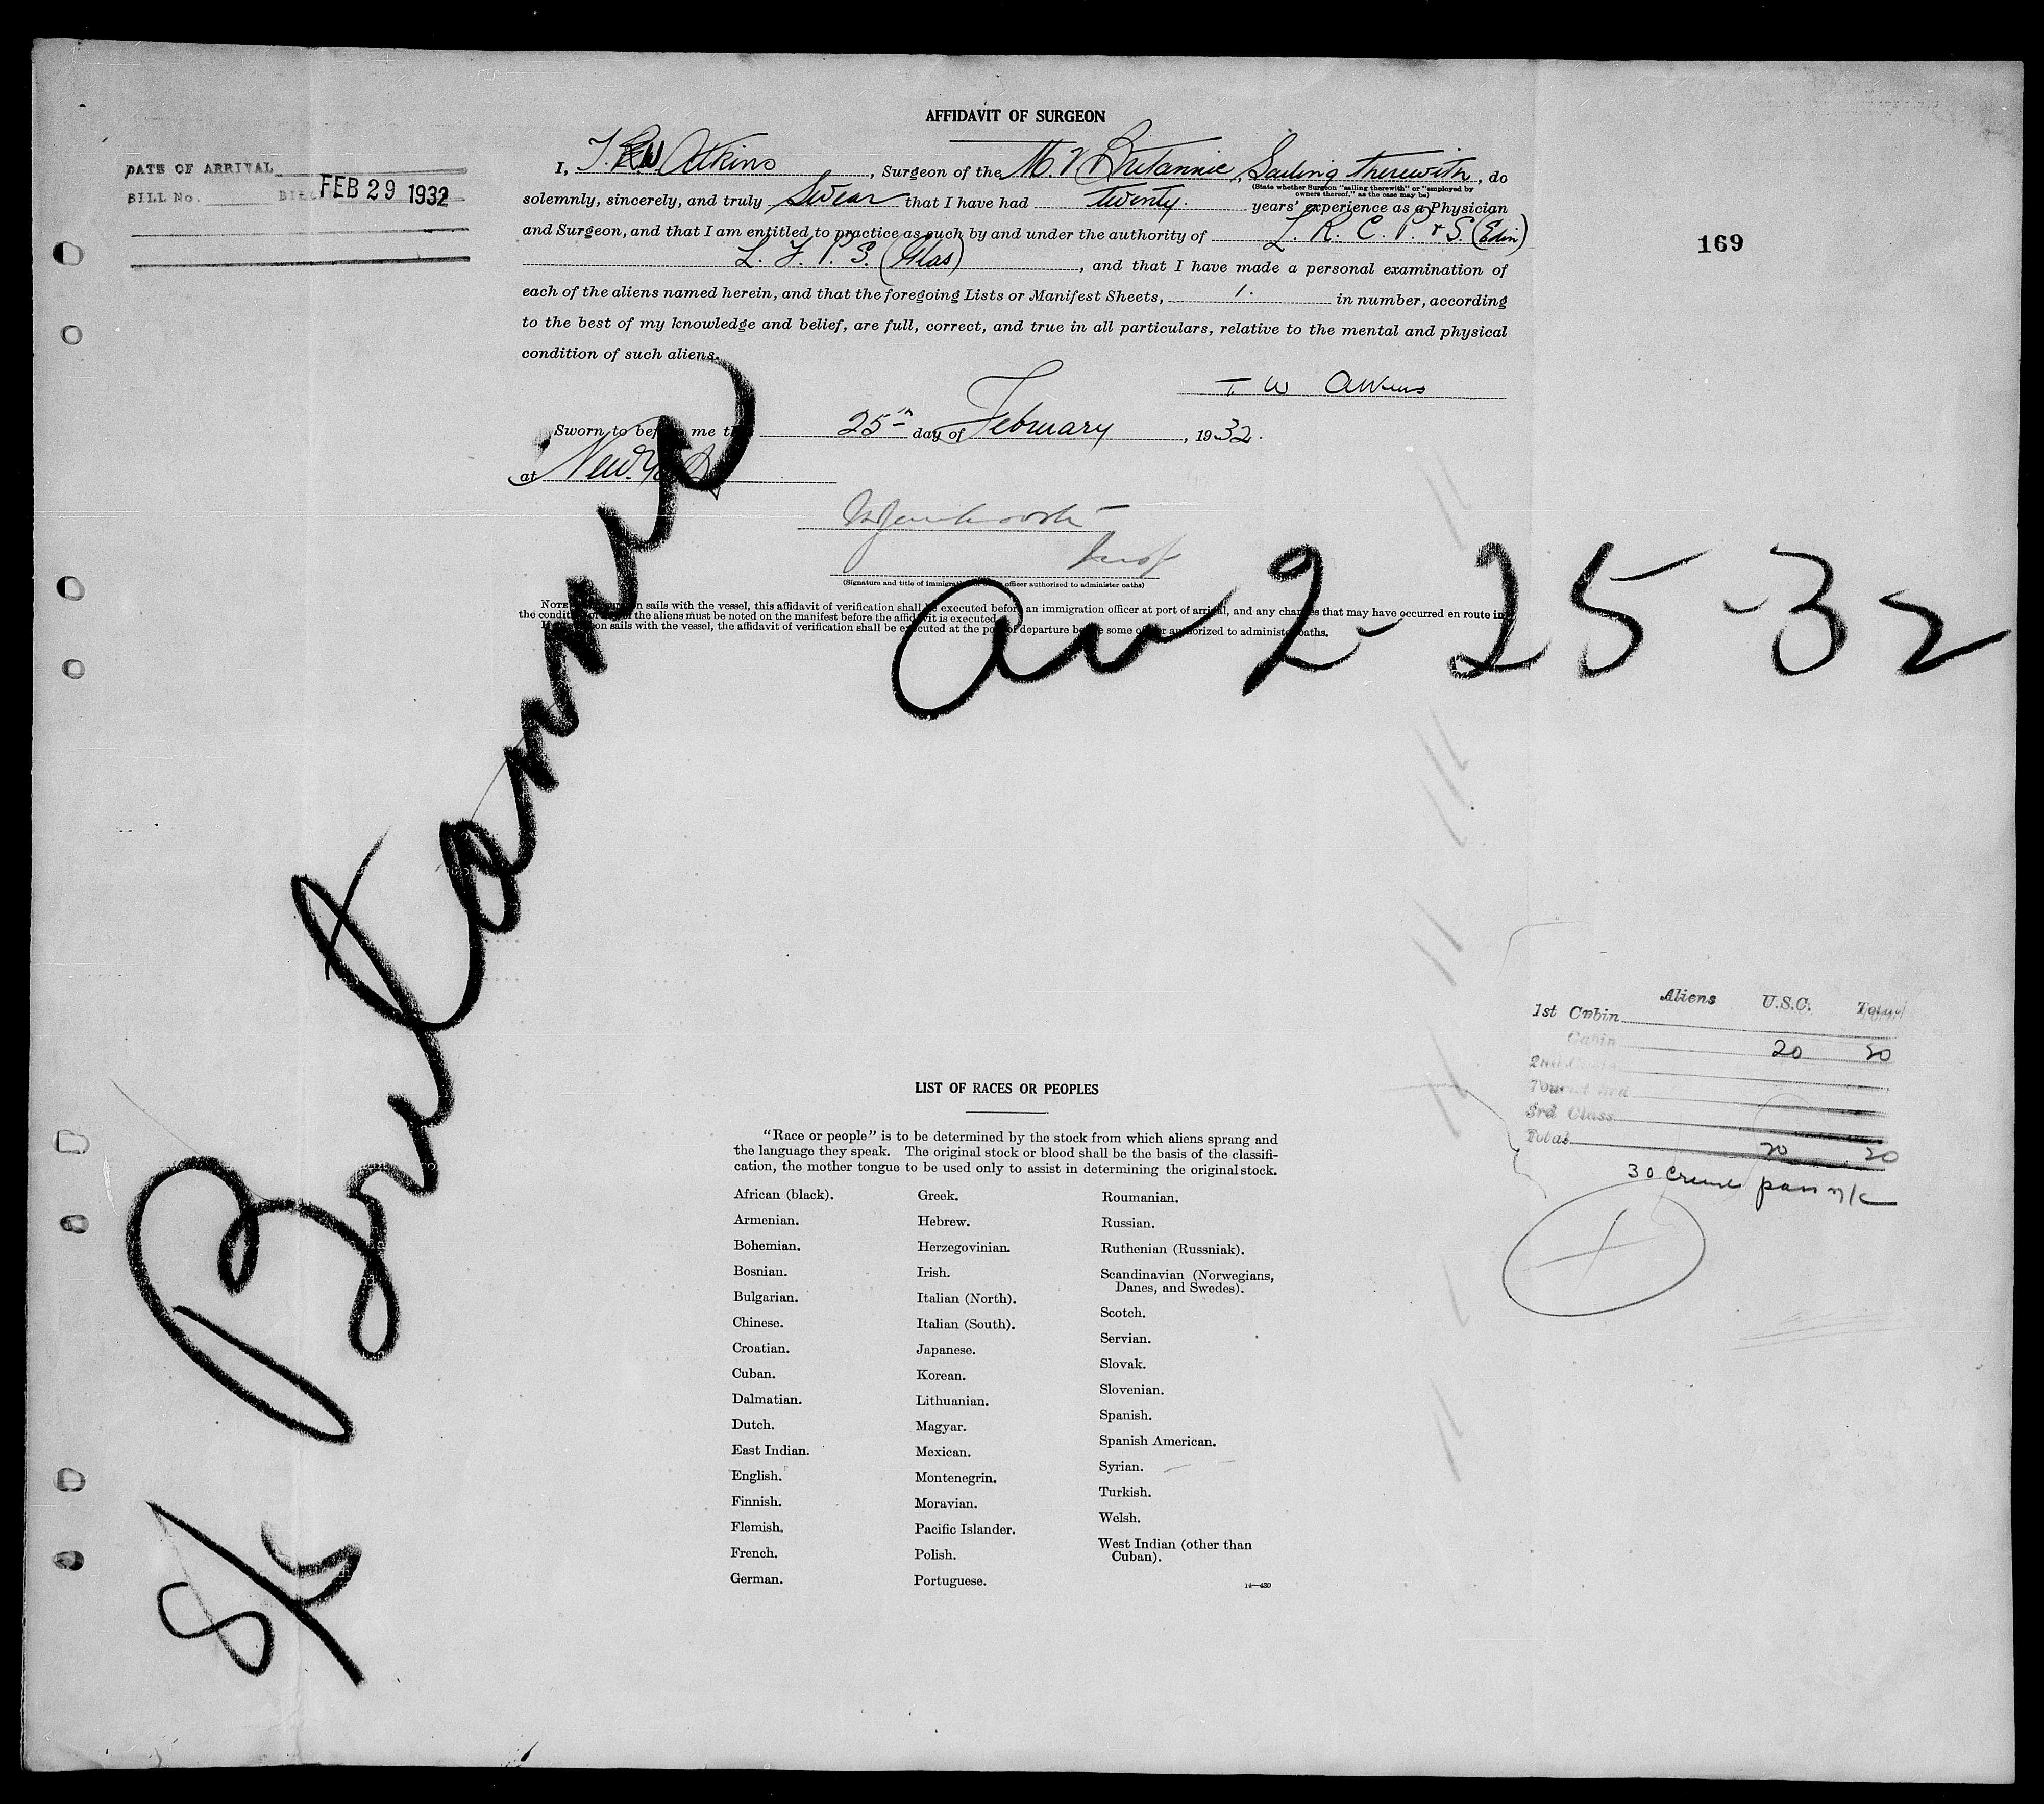 AFFIDAVIT OF SURGEON
DATE OF ARRIVAL
BILL No. FEB 29 1932
169
I, T. W Atkins, Surgeon of the M. V Britannic, Sailing therewith, do
(State whether Surgeon "sailing therewith" or "employed by
owners thereof," as the case may be)
solemnly, sincerely, and truly Swear that I have had twenty. years' experience as a Physician
and Surgeon, and that I am entitled to practice as such by and under the authority of L. R. C. P. & S. (Edin)
L. F. P. S. (Glas), and that I have made a personal examination of
each of the aliens named herein, and that the foregoing Lists or Manifest Sheets, 1. in number, according
to the best of my knowledge and belief, are full, correct, and true in all particulars, relative to the mental and physical
condition of such aliens.
T W Atkins
Sworn to before me this 25th day of February, 1932.
at New York
(Signature and title of immigration or other officer authorized to administer oaths)
NOTE sails with the vessel, this affidavit of verification shall be executed before an immigration officer at port of arrival, and any changes that may have occurred en route in
the condition of the aliens must be noted on the manifest before the affidavit is executed.
sails with the vessel, the affidavit of verification shall be executed at the port of departure before some officer authorized to administer oaths.
Arr 2-25-32
S/S Britannic
Aliens U.S.C. Total
1st Cabin
Cabin 20 20
2nd Cabin
Tourist 3rd
3rd Class
Total 20 20
30 Cruise pass
LIST OF RACES OR PEOPLES
"Race or people" is to be determined by the stock from which aliens sprang and
the language they speak. The original stock or blood shall be the basis of the classifi-
cation, the mother tongue to be used only to assist in determining the original stock.
African (black).
Armenian.
Bohemian.
Bosnian.
Bulgarian.
Chinese.
Croatian.
Cuban.
Dalmatian.
Dutch.
East Indian.
English.
Finnish.
Flemish.
French.
German.
Greek.
Hebrew.
Herzegovinian.
Irish.
Italian (North).
Italian (South).
Japanese.
Korean.
Lithuanian.
Magyar.
Mexican.
Montenegrin.
Moravian.
Pacific Islander.
Polish.
Portuguese.
Roumanian.
Russian.
Ruthenian (Russniak).
Scandinavian (Norwegians,
Danes, and Swedes).
Scotch.
Servian.
Slovak.
Slovenian.
Spanish.
Spanish American.
Syrian.
Turkish.
Welsh.
West Indian (other than
Cuban).
14—430